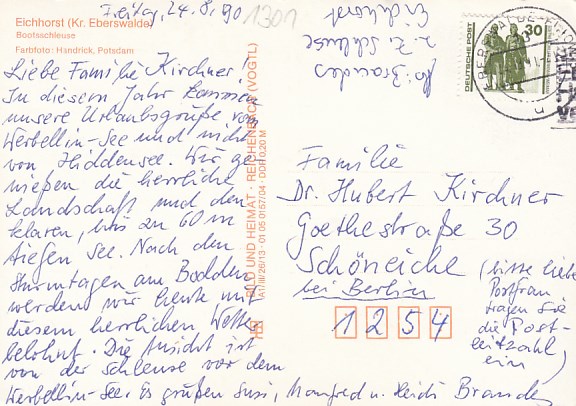 Freitag, 24.8.90
1301
Eichhorst (Kr. Eberswalde)
Bootsschleuse
Farbfoto: Handrick, Potsdam
Liebe Familie Kirchner!
In diesem Jahr kommen
unsere Urlaubsgrüße vom
Werbellin-See und nicht
von Hiddensee. Wir ge-
nießen die herrliche
Landschaft und den
klaren, bis zu 60 m
tiefen See. Nach den
Sturmtagen am Bodden
werden wir heute mit
diesem herrlichen Wetter
belohnt. Die Ansicht ist
von der Schleuse vor dem
Werbellin-See. Es grüßen Susi, Manfred u. Heidi Brandes
BILD UND HEIMAT · REICHENBACH (VOGTL)
A1/III/26/13 · 01 05 0157/04 · DDR 0,20 M
Brandes
z. Z. Schleuse
Eichhorst
DEUTSCHE POST
30
Familie
Dr. Hubert Kirchner
Goethestraße 30
Schöneiche
bei Berlin
1254
(bitte liebe
Postfrau
tragen Sie
die Post-
leitzahl
ein)